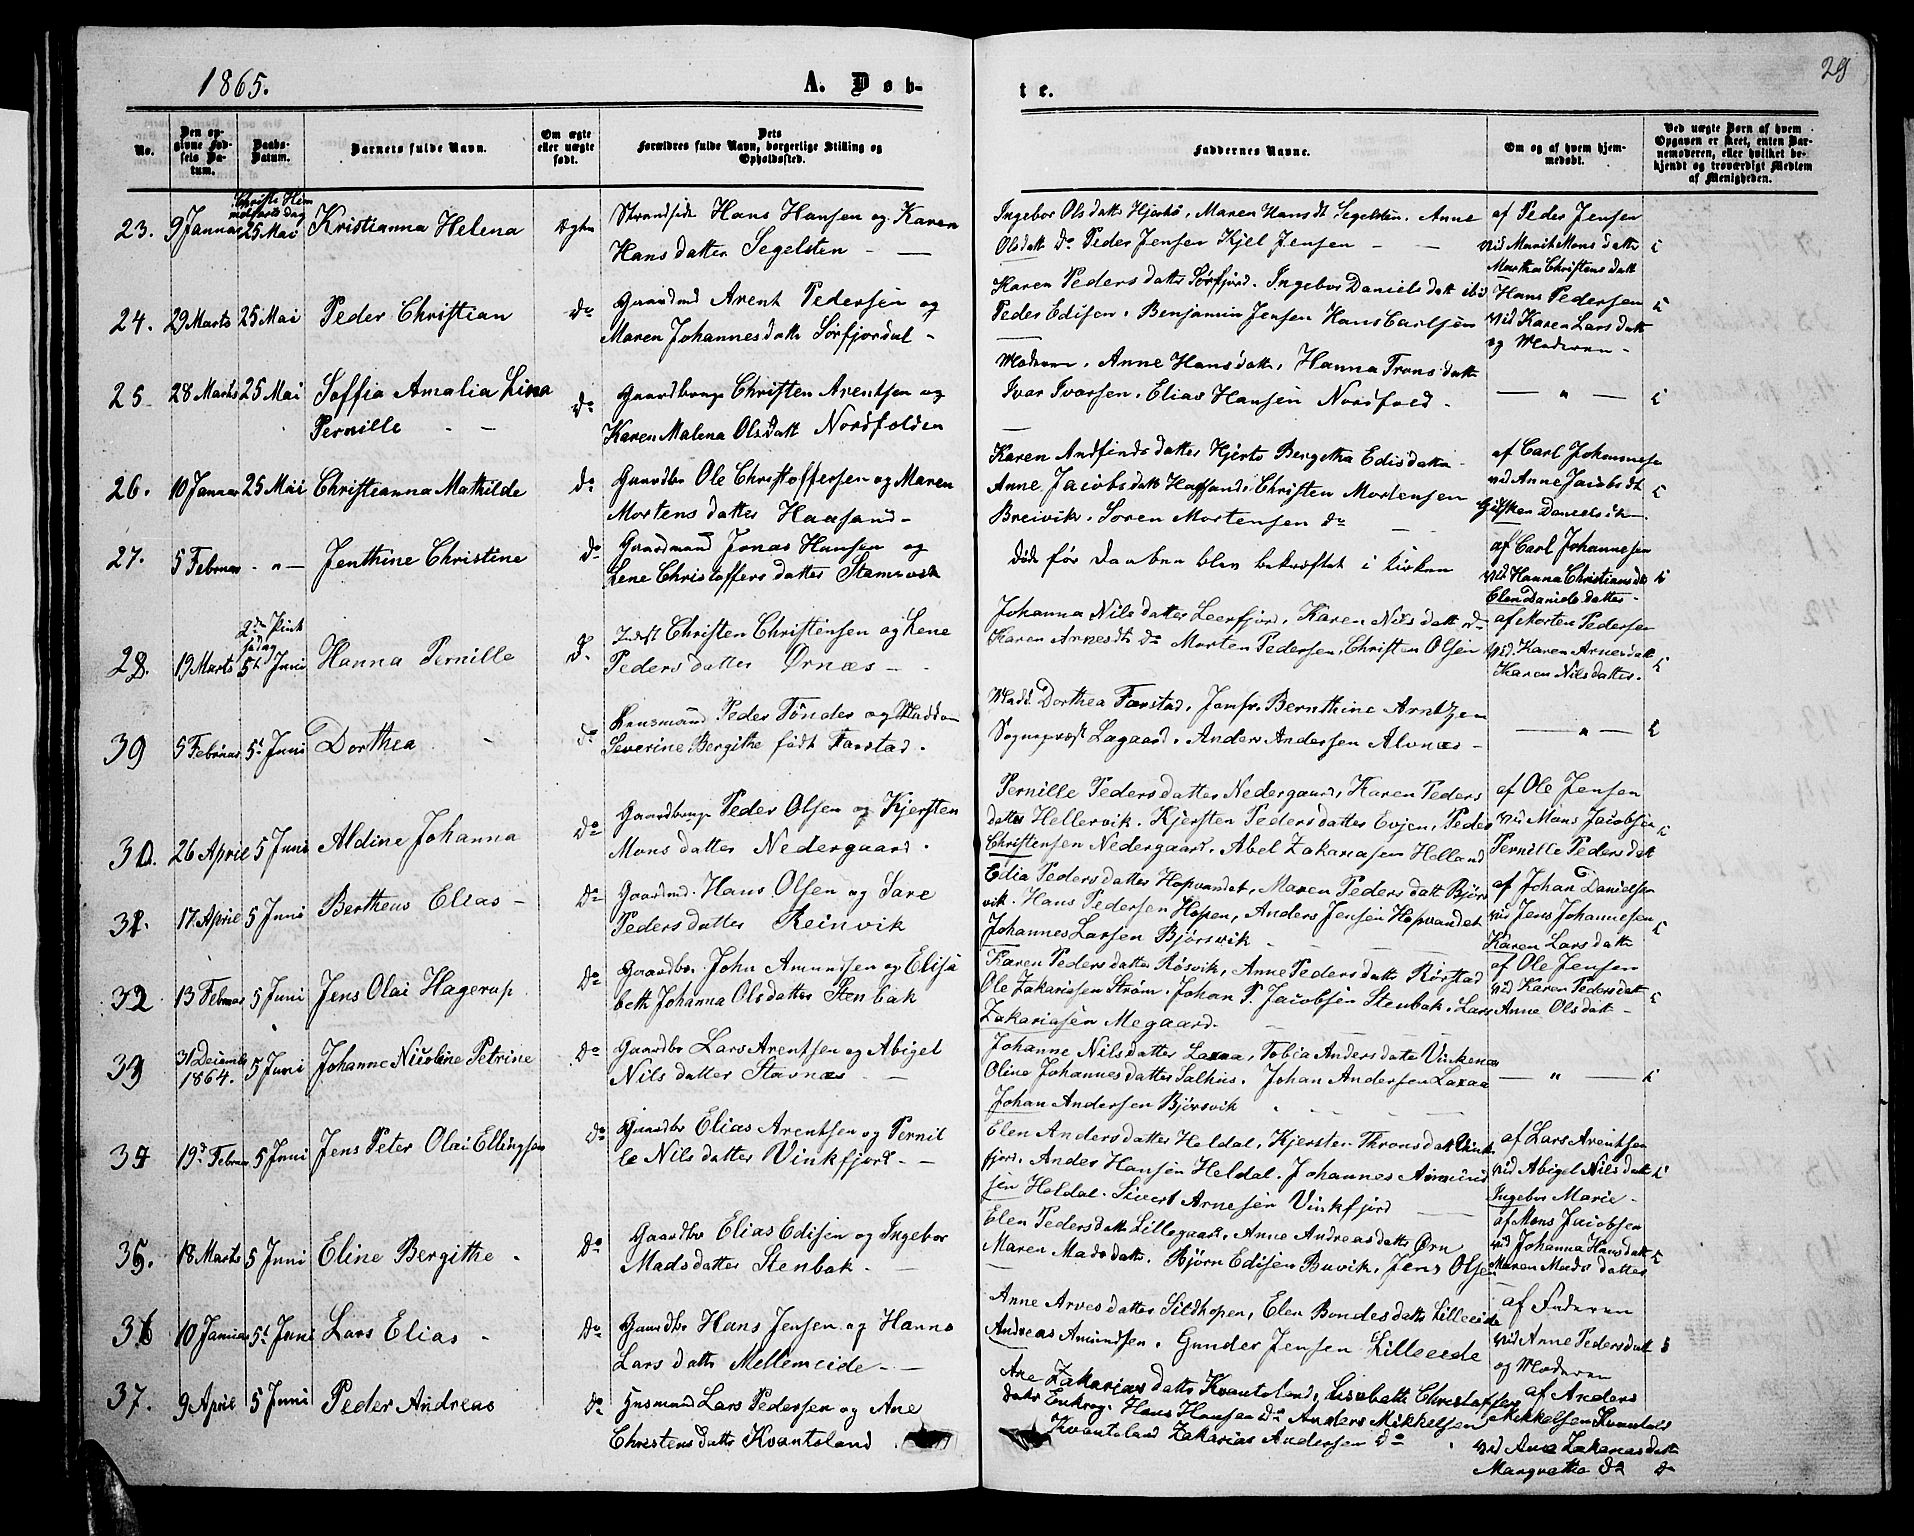 1865.
A. Døb-
te.
29
No.
Den opgivne Fødsels Datum.
Daabs-Datum.
Barnets fulde Navn.
Om ægte eller uægte født.
Dets Forældres fulde Navn, borgerlige Stilling og Opholdssted.
Faddernes Navne.
Om og af hvem hjemmedøbt.
Ved uægte Børn af hvem Opgaven er skeet, enten Barnemoderen, eller hvilket bekjendt og troværdigt Medlem af Menigheden.
Christi Him
melfarts dag
23. 9 Januar 25 Mai Kristianna Helena Ægte
Strandsidd Hans Hansen og Karen
Hansdatter Segelsten
Ingebor Olsdatt Hjertø, Maren Hansdt Segelsten, Anne
Olsdatt do Peder Jensen Kjel Jensen
af Peder Jensen
ved Marit Mons datt
Martha Christens datt
24. 29 Marts 25 Mai Peder Christian do
Gaardmd Arent Pedersen og
Maren Johannesdatt Sørfjordal
Karen Pedersdatter Sørfjord. Ingebor Daniels datt ibid
Peder Edisen, Benjamin Jensen Hans Carlsen
Hans Pedersen
ved Karen Lars datt
og Moderen
25 28 Marts 25 Mai Soffia Amalia Lina
Pernille do
Gaardbruge Christen Arentsen og
Karen Malena Olsdatt Nordfolden
Moderen, Anne Hansdatt, Hanna Tronsdatt
Ivar Ivarsen, Elias Hansen Nordfold
26. 10 Januar 25 Mai Christianna Mathilde do
Gaardbr Ole Christoffersen og Maren
Mortens datter Haasand
Karen Andfinds datter Hjertø Bergetha Edisdatter
Anne Jacobsdatt Haasand, Christen Mortensen
Breivik, Soren Mortensen do
af Carl Johannesen
ved Anne Jacobsdt
Gjertken Danielsdt
27. 5 Februar Jenthine Christine do
Gaardmand Jonas Hansen og
Lene Christoffersdatter Stamsvik
døde før Daaben blev bekræftet i Kirken
af Carl Johannesen
ved Hanna Christiansdt
Elen Danielsdatter
2den Pint
sedag
28. 19 Marts 5t Juni Hanna Pernille do
Inds Christen Christensen og Lene
Pedersdatter Ørnæs
Johanna Nilsdatter Leerfjord, Karen Nilsdatt do
Karen Arnesdt do Morten Pedersen, Christen Olsen
af Morten Pedersen
ved Karen Arnesdatt
Karen Nilsdatter.
39 5 Februar 5t Juni Dorthea do
Lensmand Peder Tønder og Maddam
Severine Bergithe født Farstad.
Mad. Dorthea Farstad, Jomfr. Bernthine Arntzen
Sognepræst Lagaard, Anders Andersen Alvnæs
30. 26 April 5 Juni Aldine Johanna do
Gaardbruge Peder Olsen og Kjersten
Mons datter Nedergaard.
Pernille Pedersdatter Nedergaard, Karen Peders
datter Hellervik. Kjersten Pedersdatter Evjen, Peder
Christensen Nedergaard, Abel Zakariasen Helland
af Ole Jensen
ved Mons Jacobsen
Pernille Pedersdatt
31. 17 April 5 Juni Bertheus Elias do
Gaardmd. Hans Olsen og Sare
Pedersdatter Reinvik
Edia Pedersdatter Hopvandet, Maren Pedersdatt Bjørs
vik. Hans Pedersen Hopen, Anders Jensen Hopvandet
Johannes Larsen Bjørsvik
af Johan Danielsen
ved Jens Johannesen
Karen Larsdatt
32 13 Februar 5 Juni Jens Olai Hagerup do
Gaardbr. John Amundsen og Elisa
beth Johanna Olsdatter Stenbak
Karen Pedersdatter Røsvik, Anne Pedersdatt Rørstad
Ole Zakariasen Strøm, Johan P. Jacobsen Stenbak, Lars
Zakariasen Megaard.
af Ole Jensen
ved Karen Pedersdatt
Anne Olsdatt
33 31 Decembr
1864. 5 Juni Johanne Nicoline Petrine do
Gaardbr Lars Arentsen og Abigel
Nilsdatter Stavnæs
Johanne Nilsdatter Laxaa, Tobia Andersdatter Vinkenes
Oline Johannesdatter Salhus, Johan Andersen Laxaa
Johan Andersen Bjørsvik
34 19d Februar 5 Juni Jens Peter Olai Ellingsen do
Gaardbr Elias Arentsen og Pernil
le Nilsdatter Vinkfjord
Elen Andersdatter Heldal, Kjersten Thronsdatt Vink
fjord, Andes Hansen Heldal. Johannes Amund
sen Heldal. Sivert Arnesen Vinkfjord
af Lars Arentsen
ved Abigel Nilsdatt
Ingebor Marie
35. 18 Marts 5 Juni Eline Bergithe do
Gaardbr Elias Edisen og Ingebor
Madsdatter Stenbak
Elen Pedersdatt Lillegaard, Anne Andreasdatter Ørn
Maren Madsdatt, Bjørn Edisen Buvik, Jens Olsen
af Mons Jacobsen
ved Johanna Hansdatt
Maren Mads datter
36 10 Januar 5t Juni Lars Elias do
Gaardbr Hans Jensen og Hanna
Lars datter Mellemeide
Anne Arnes datter Sildhopen, Elen Bendesdatter Lilleeide
Andreas Amundsen, Gunder Jensen Lilleeide
af Faderen
ved Anne Pedersdatt
og Moderen
37. 9 April 5 Juni Peder Andreas do
Husmand Lars Pedersen og Ane
Christensdatter Kvantoland
Ane Zakarias datter Kvantoland, Lisabeth Christoffers
datt Enkrog. Hans Hansen do Anders Mikkelsen
Kvantoland Zakarias Andersen do
af Anders
Mikkelsen Kvantold
ved Ane Zakariasdatt
Margrethe do